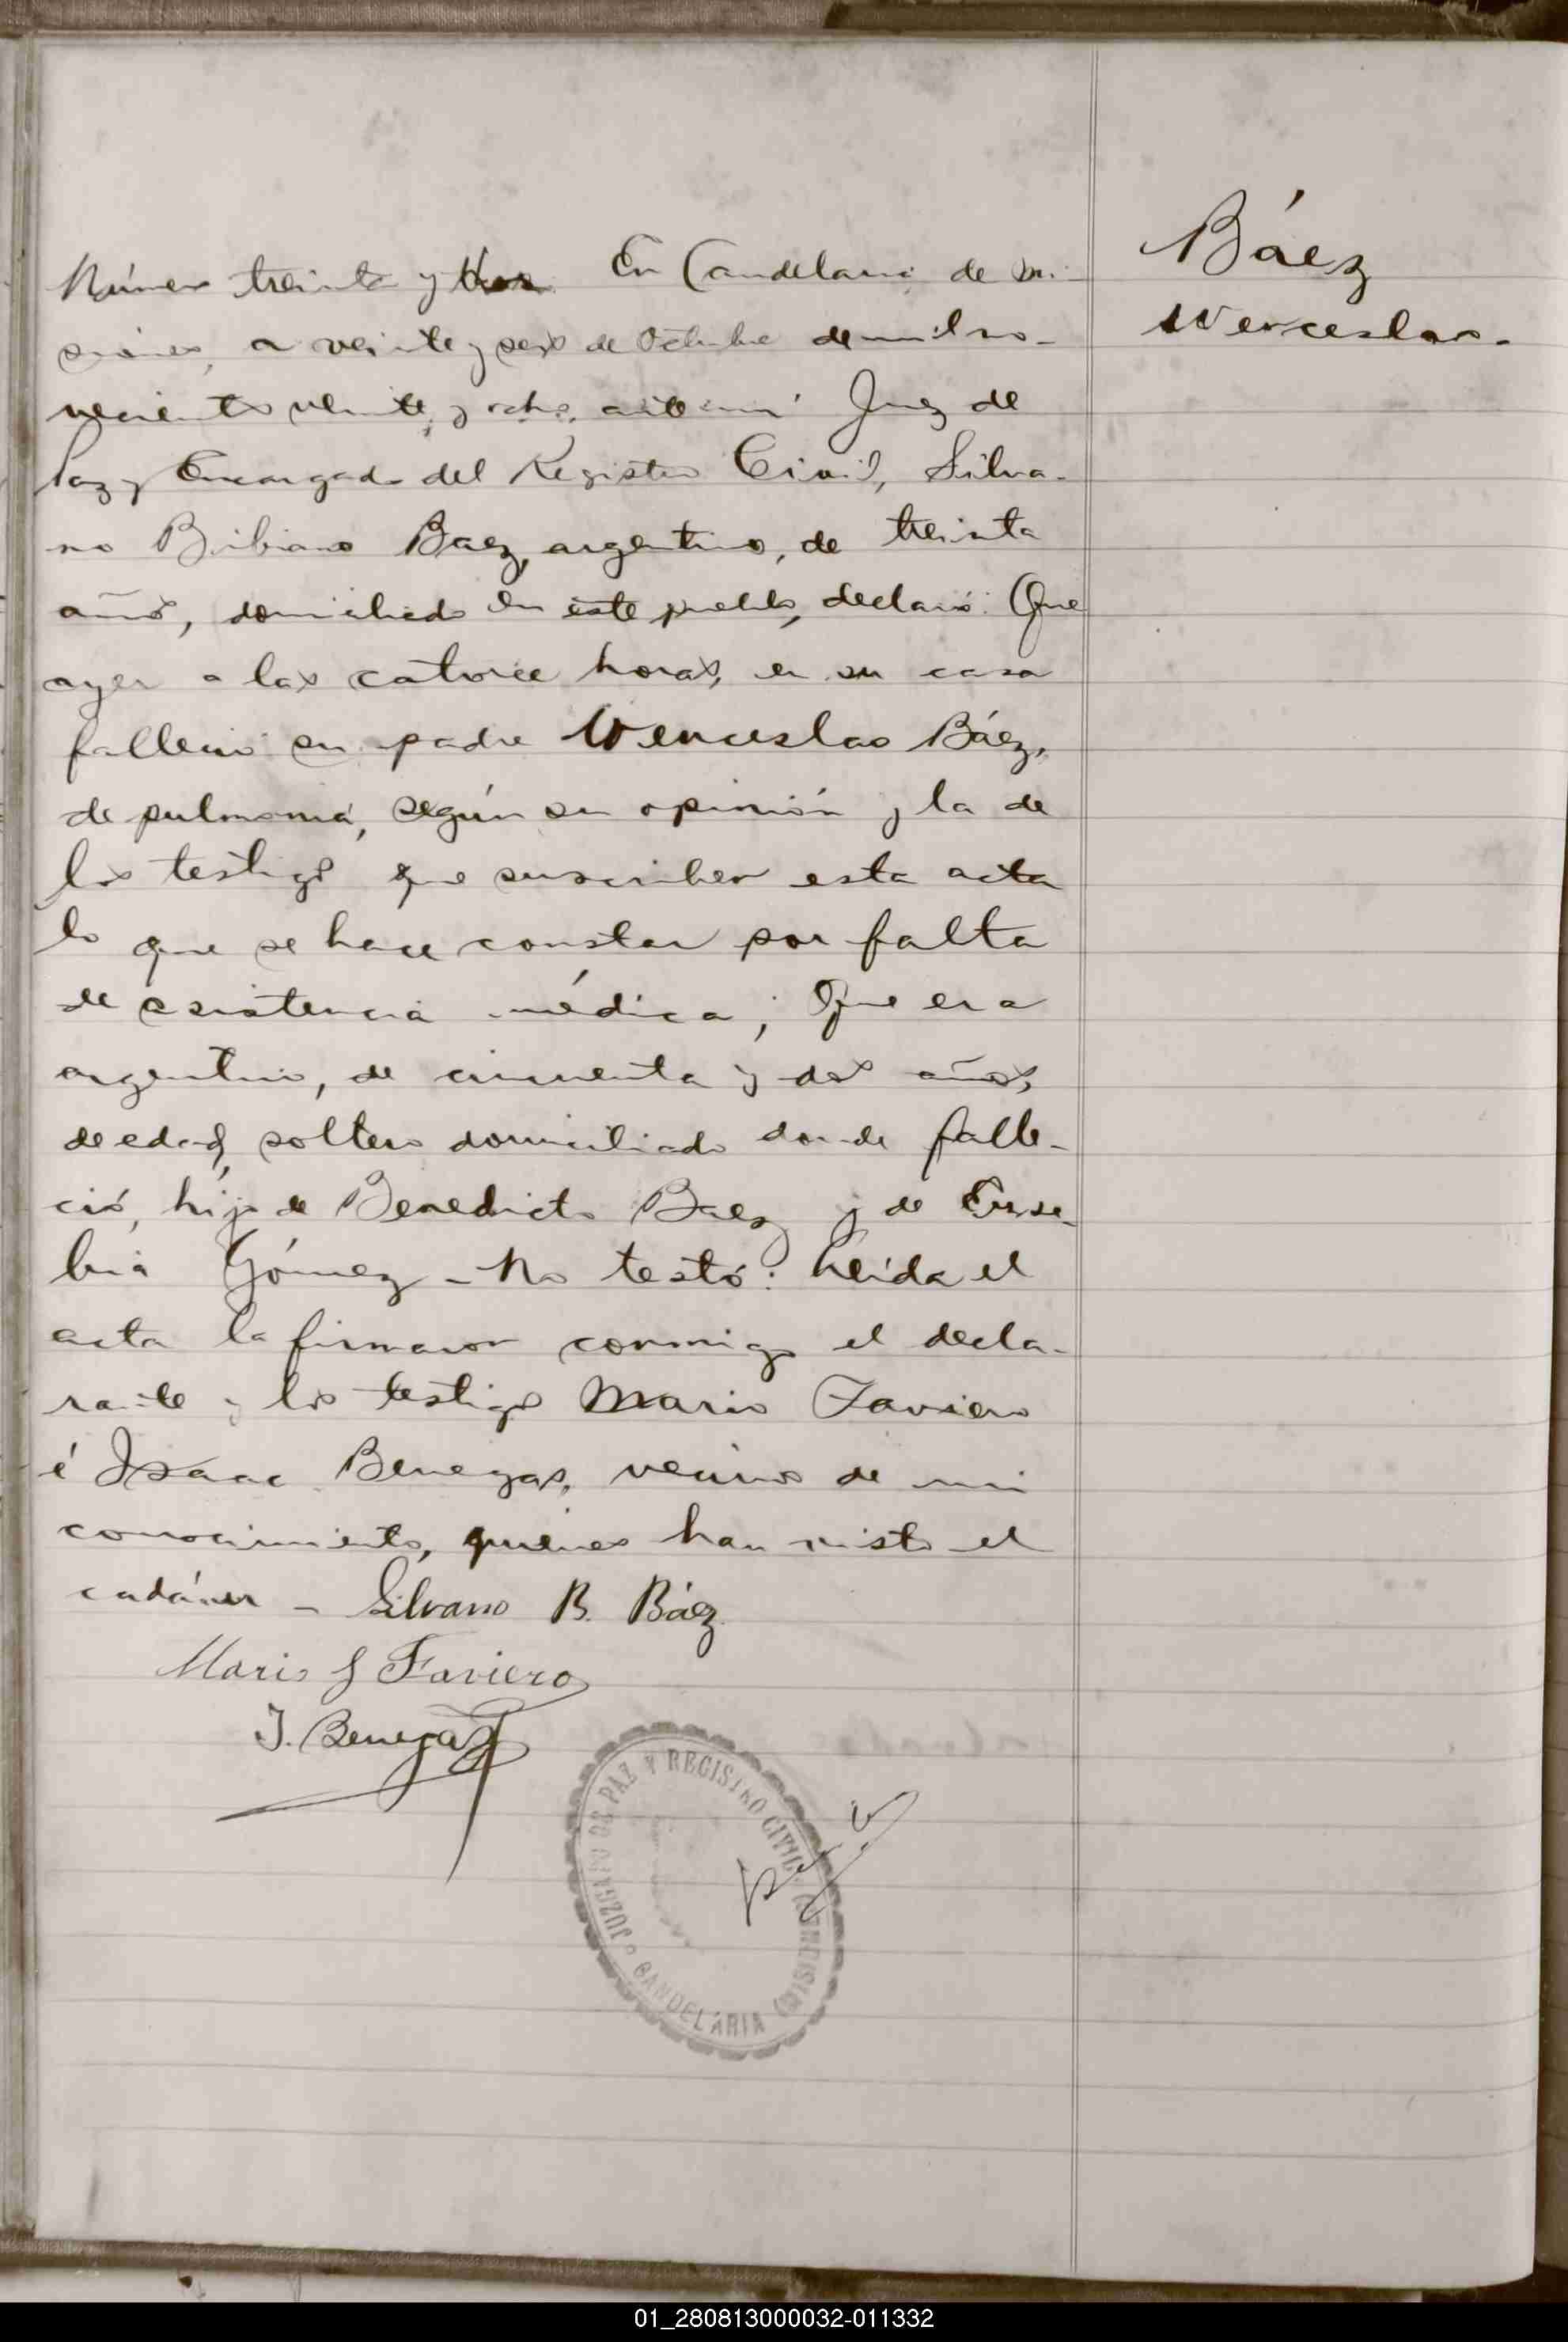 Báez
Wenceslao.
Número treinta y tres En Candelaria de Mi-
siones, a veinte y seis de Octubre de mil no-
veciento veinte y ocho, ante mi Juez de
Paz y Encargado del Registro Civil, Silva-
no Bibiano Baez, argentino, de treinta
años, domiciliado en este pueblo, declaró: Que
ayer a las catorce horas, en su casa
falleció su padre Wenceslao Báez,
de pulmonía, según su opinión y la de
los testigos que suscriben esta acta
lo que se hace constar por falta
de asistencia médica; Que era
argentino, de cincuenta y dos años,
de edad, soltero domiciliado donde falle-
ció, hijo de Benedicto Baez y de Euse-
bia Gómez - No testó: Leída el
acta la firmaron conmigo el decla-
rante y los testigos Mario Faviero
é Isaac Benegas, vecinos de mi
conocimiento, quienes han visto el
cadáver - Silvano B. Báez
Mario J Faviero
I. Benegas
JUZGADO DE PAZ Y REGISTRO CIVIL
CANDELARIA (MISIONES)
01_280813000032-011332